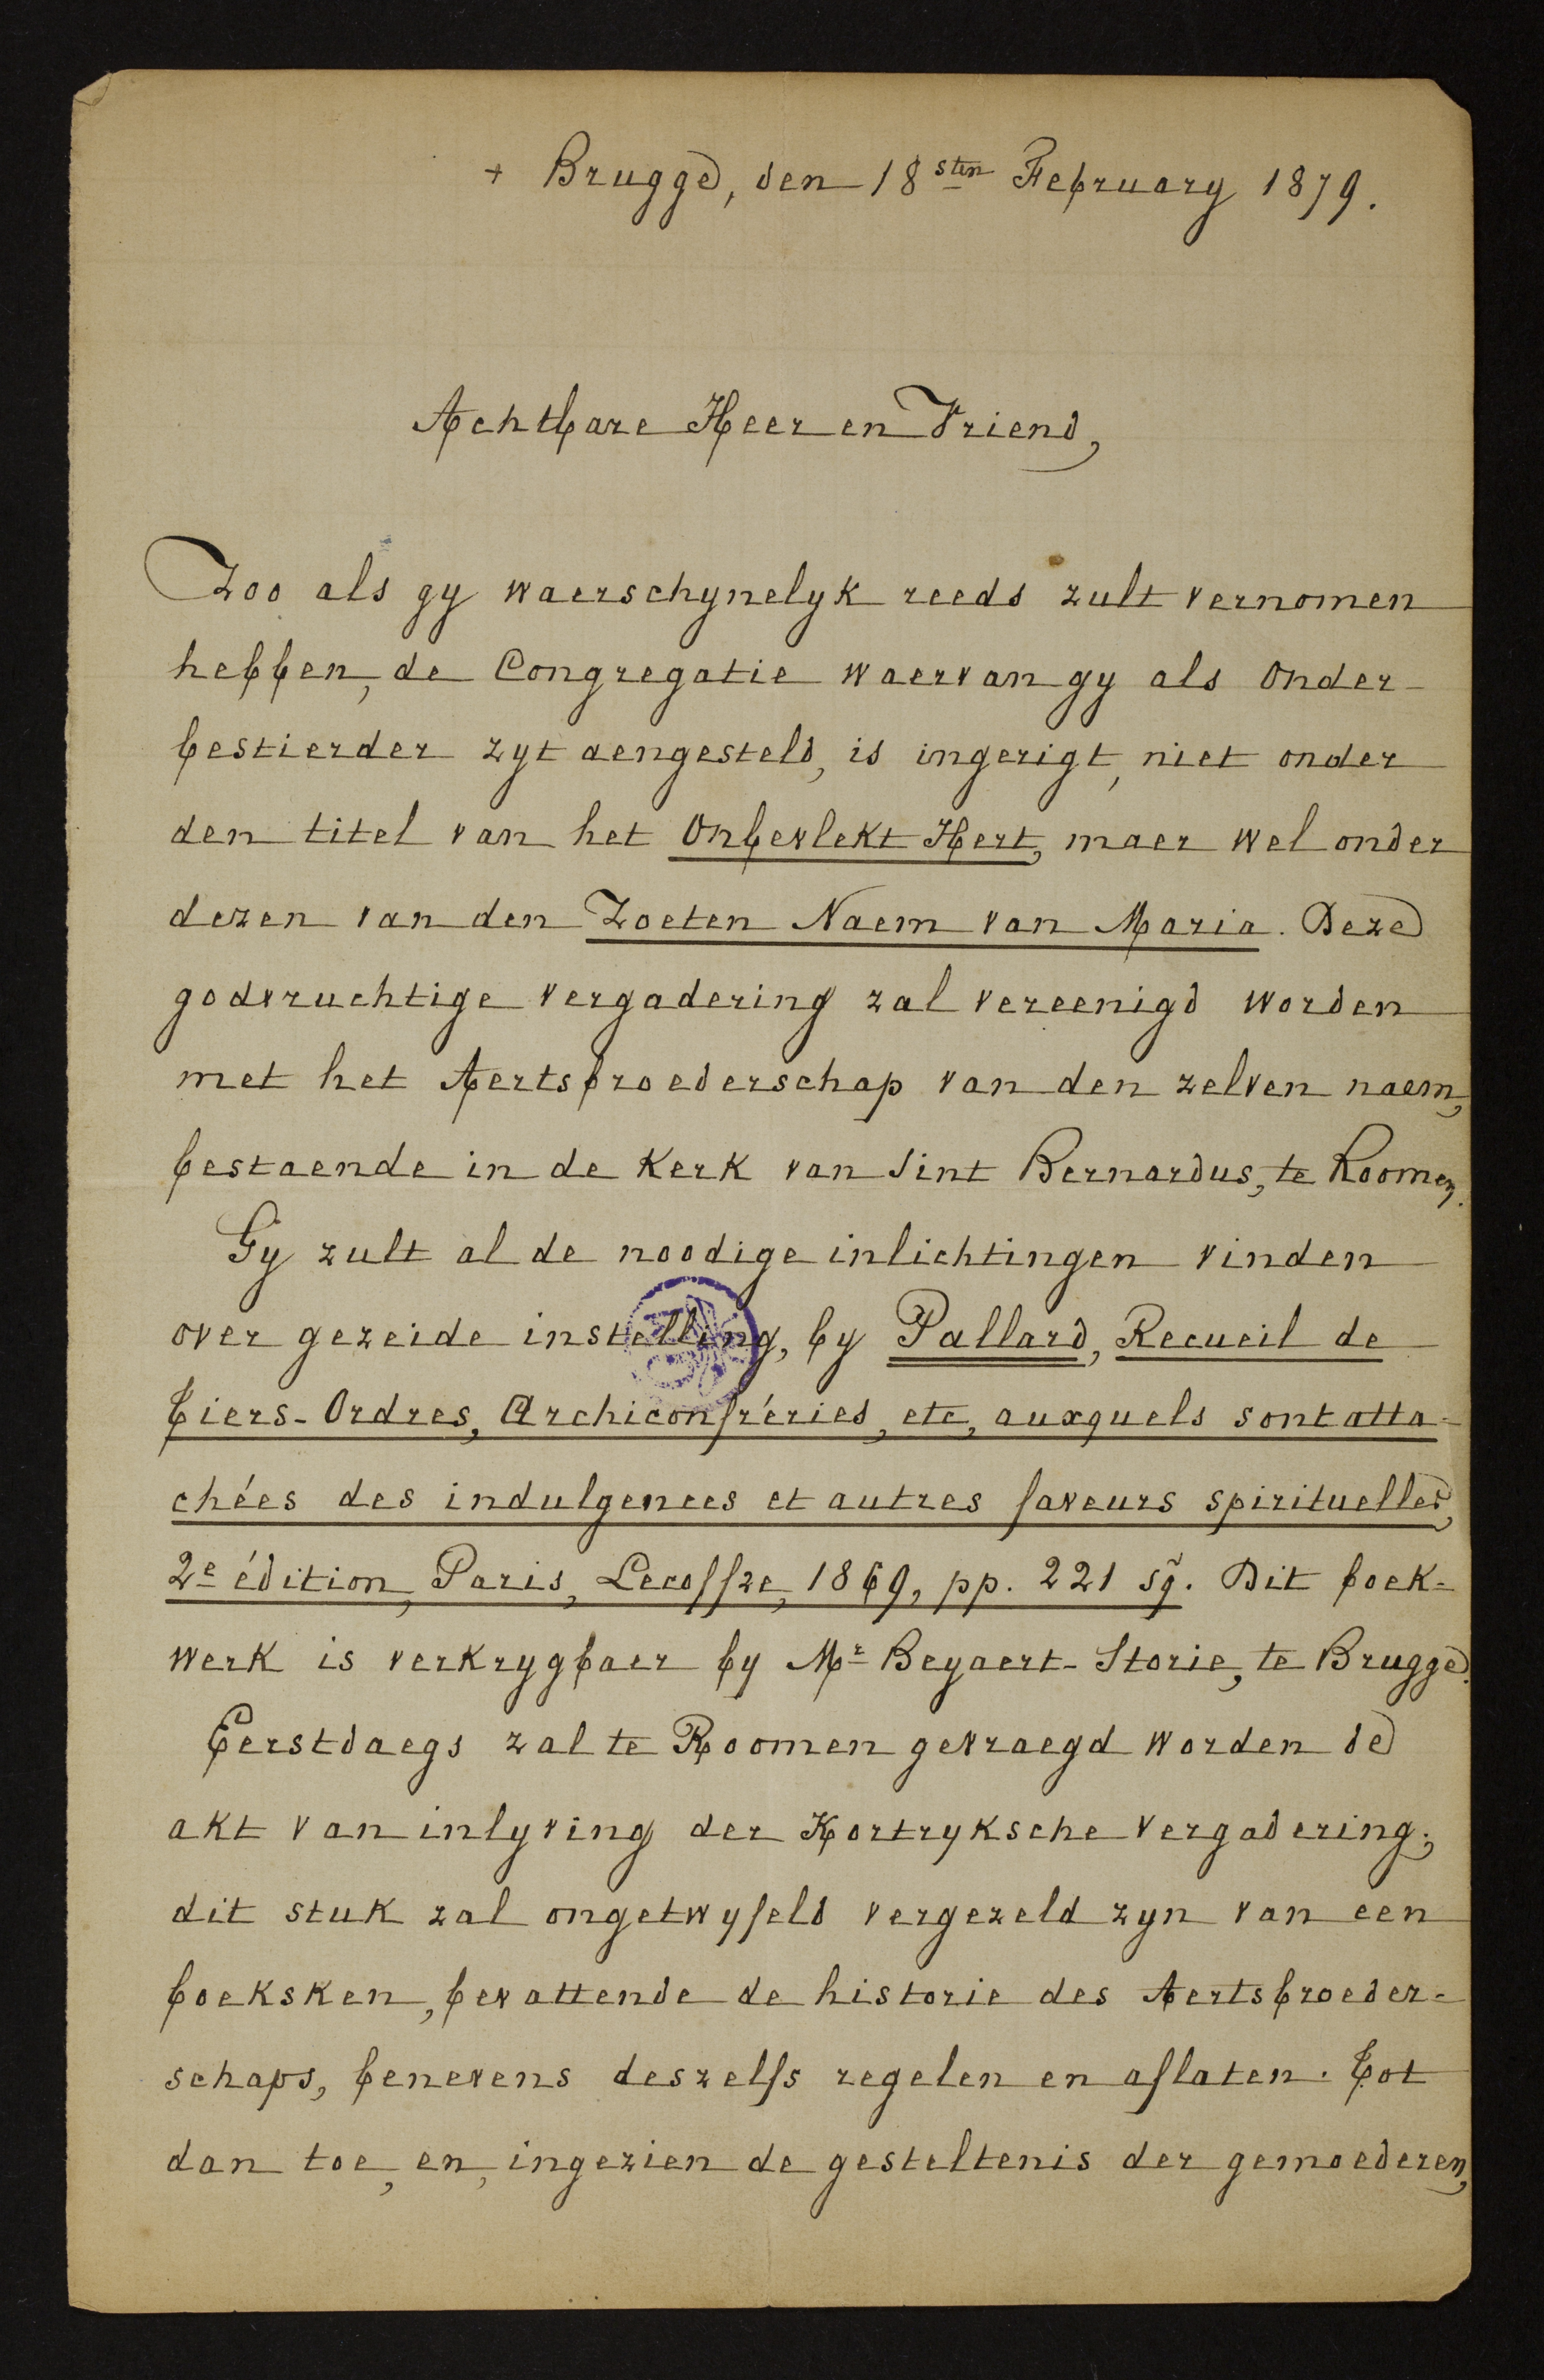 + Brugge, den 18sten February 1879.
Achtbare Heer en Vriend,
Zoo als gy waerschynelyk reeds zult vernomen
hebben, de Congregatie waervan gy als Onder-
bestierder zyt aengesteld, is ingerigt, niet onder
den titel van het Onbevlekt Hert, maer wel onder
dezen van den Zoeten Naem van Maria. Deze
godvruchtige vergadering zal vereenigd worden
met het Aertsbroederschap van den zelven naem,
bestaende in de Kerk van Sint Bernardus, te Roomen.
Gy zult al de noodige inlichtingen vinden
over gezeide instelling, by Pallard, Recueil de
Tiers-Ordres, Archiconfréries, etc, auxquels sont atta-
chées des indulgences et autres faveurs spirituelles,
2e édition, Paris, Lecoffre, 1869, pp. 221 sq̃. Dit boek-
werk is verkrygbaer by Mr Beyaert-Storie, te Brugge.
Eerstdaegs zal te Roomen gevraegd worden de
akt van inlyving der Kortryksche vergadering;
dit stuk zal ongetwyfeld vergezeld zyn van een
boeksken, bevattende de historie des Aertsbroeder-
schaps, benevens deszelfs regelen en aflaten. Tot
dan toe, en, ingezien de gesteltenis der gemoederen,